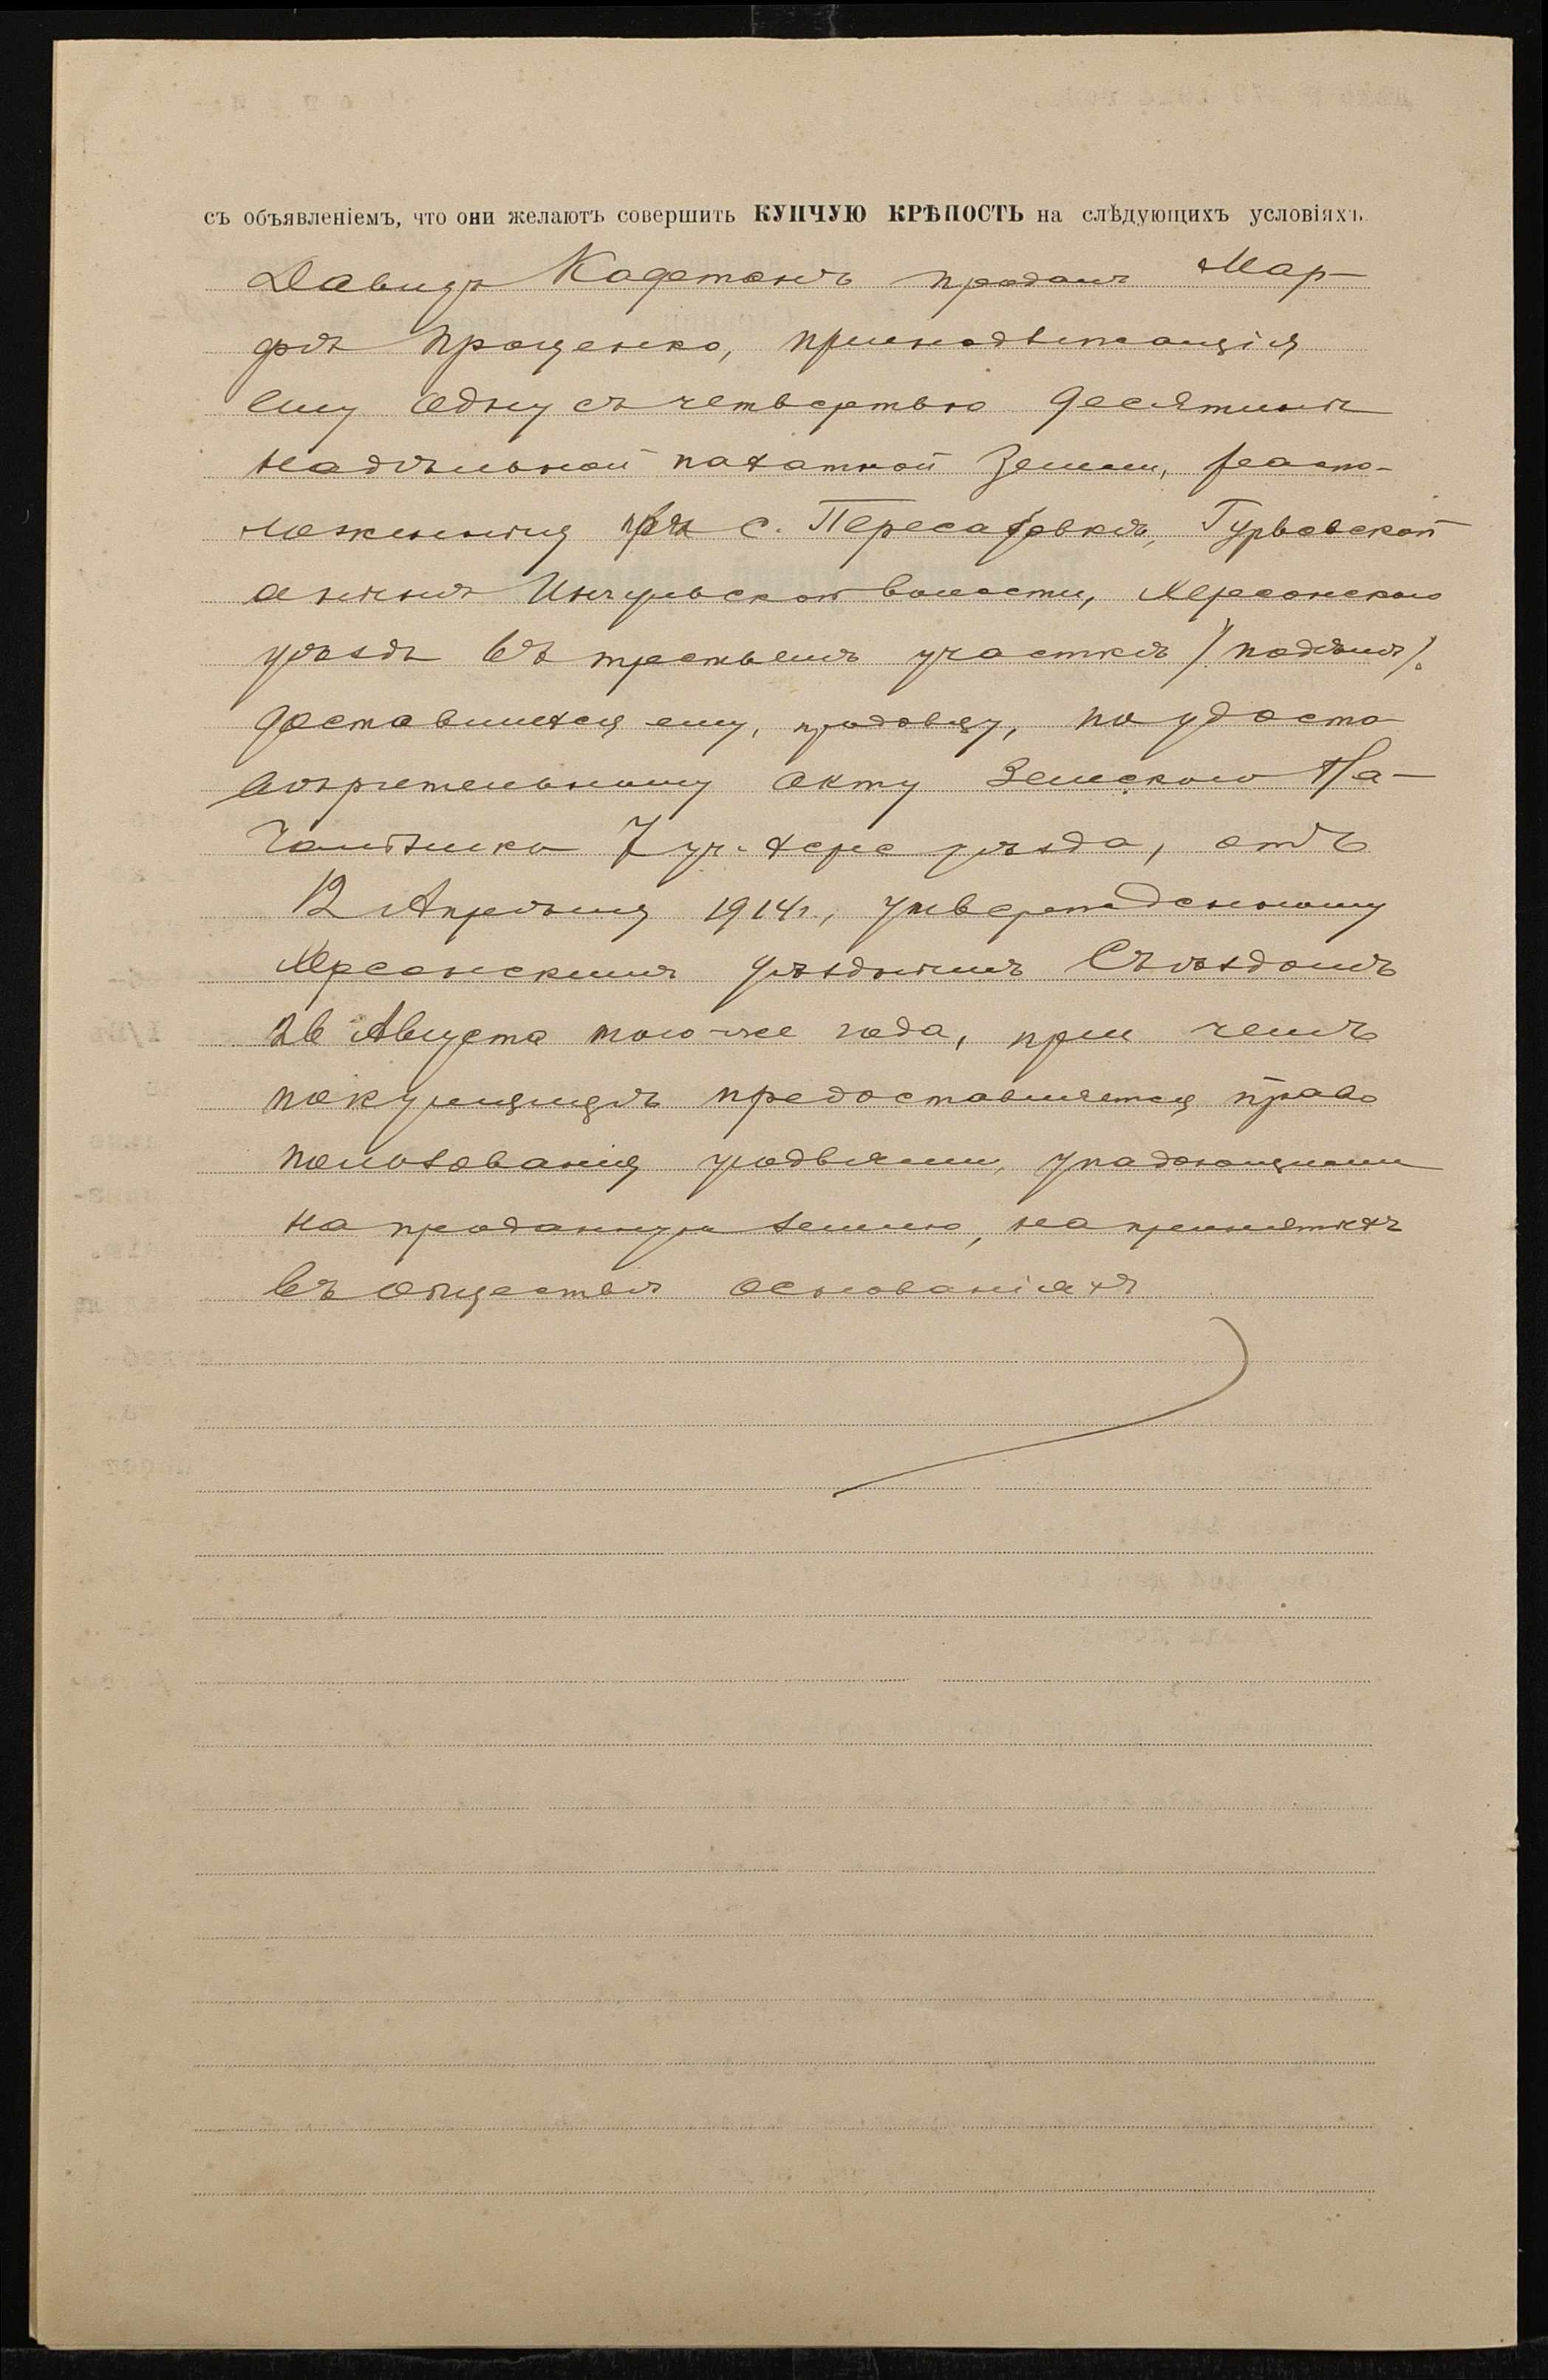 съ объявленіемъ, что они желаютъ совершить КУПЧУЮ КРѢПОСТЬ на слѣдующихъ условіяхъ
Давидъ Кафтанъ продалъ Мар-
фѣ Проценко, принадлежащія
ему одну съ четвертью десятины
надѣльной пахатной земли, распо-
ложенныя при с. Пересадовкѣ, Гурьевской
Ингульской волости, Херсонскаго
уѣзда въ третьемъ участкѣ
доставшіяся ему, продавцу, по удосто-
вѣрительному акту Земскаго На-
чальника 7 уч. Херс уѣзда, отъ
12 Апрѣля 1914 г., утвержденному
Херсонскимъ Уѣзднымъ Съѣздомъ
26 Августа того-же года, при чемъ
покупщицѣ предоставляется право
пользованія угодьями, упадающими
на проданную землю, на принятыхъ
въ обществѣ основаніяхъ